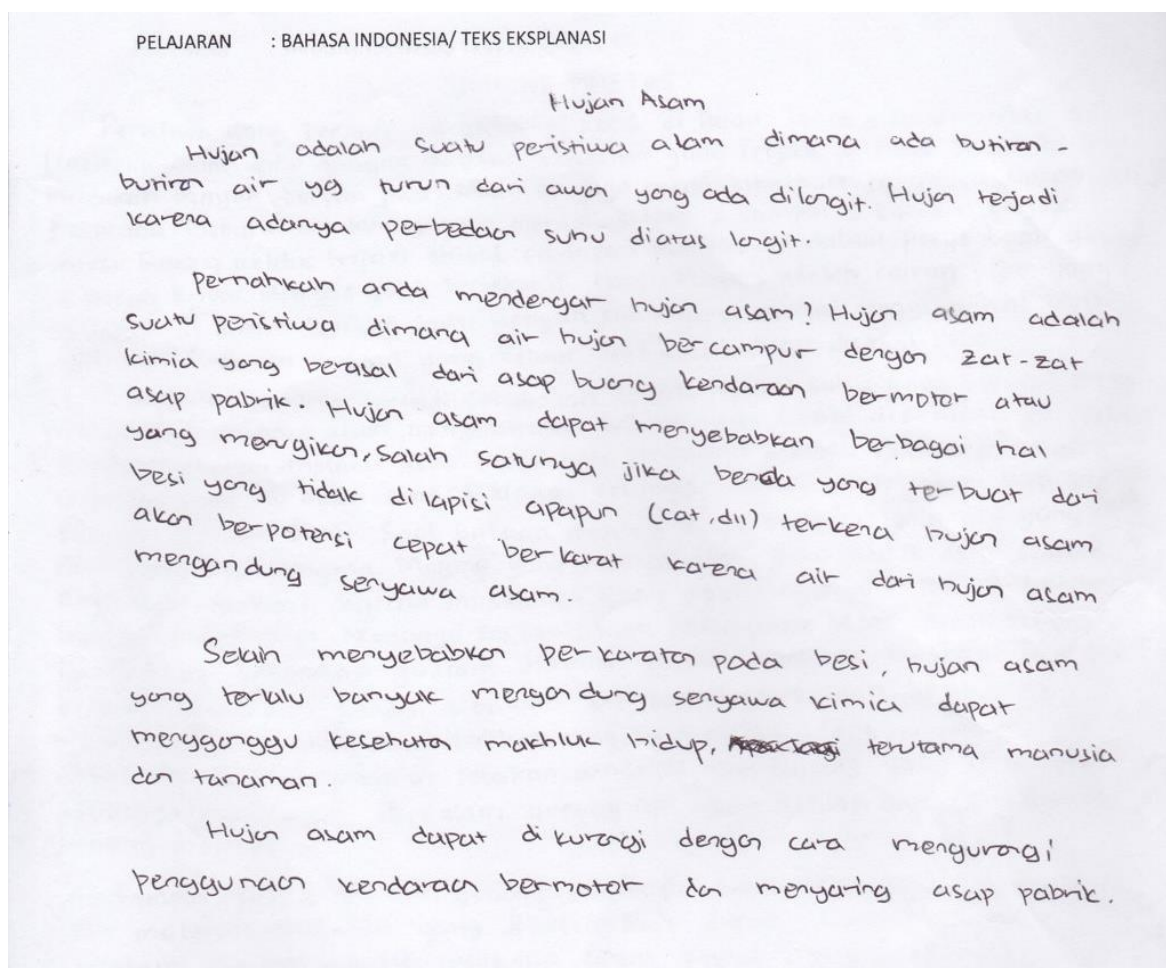 PELAJARAN : BAHASA INDONESIA/ TEKS EKSPLANASI
Hujan Asam
Hujan adalah suatu peristiwa alam dimana ada butiran -
butiran air yg turun dari awan yang ada dilangit. Hujan terjadi
karena adanya perbedaan suhu diatas langit.
Pernahkah anda mendengar hujan asam? Hujan asam adalah
suatu peristiwa dimana air hujan bercampur dengan zat-zat
kimia yang berasal dari asap buang kendaraan bermotor atau
asap pabrik. Hujan asam dapat menyebabkan berbagai hal
yang merugikan, salah satunya jika benda yang terbuat dari
besi yang tidak dilapisi apapun (cat, dll) terkena hujan asam
akan berpotensi cepat berkarat karena air dari hujan asam
mengandung senyawa asam.
Selain menyebabkan perkaratan pada besi, hujan asam
yang terlalu banyak mengandung senyawa kimia dapat
mengganggu kesehatan makhluk hidup, terutama manusia
dan tanaman.
Hujan asam dapat dikurangi dengan cara mengurangi
penggunaan kendaraan bermotor dan menyaring asap pabrik.